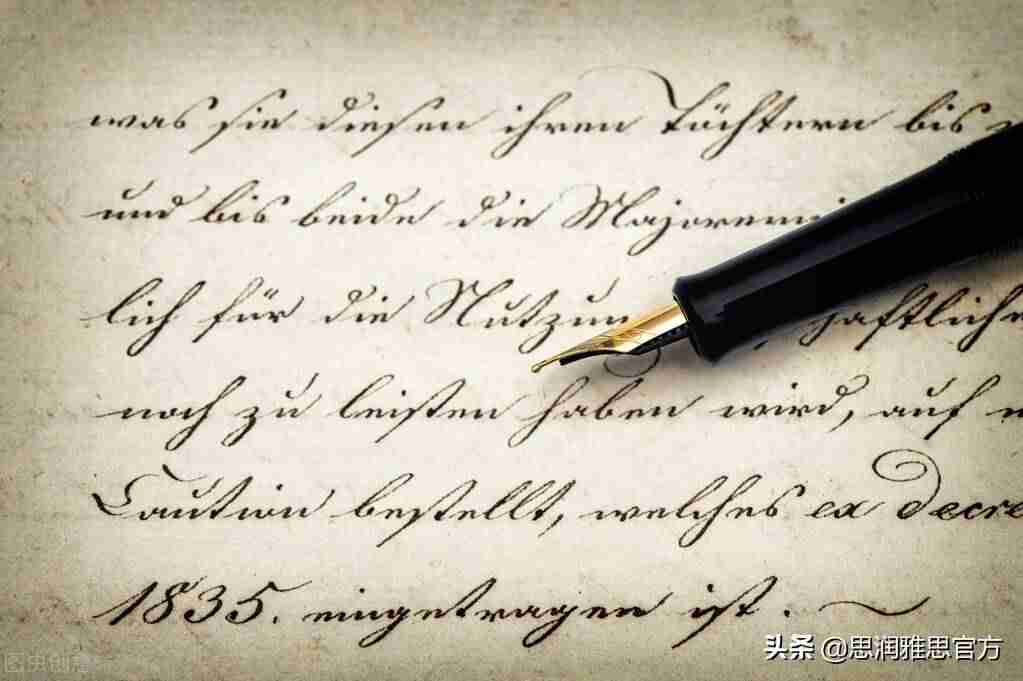 was sie diesen ihren Töchtern bis
und bis beide die Majorenni
lich für die Nutzun haftliche
noch zu leisten haben wird, auf
Caution bestellt, welches ex decre
1835. eingetragen ist.
头条 @思润雅思官方
图虫创意